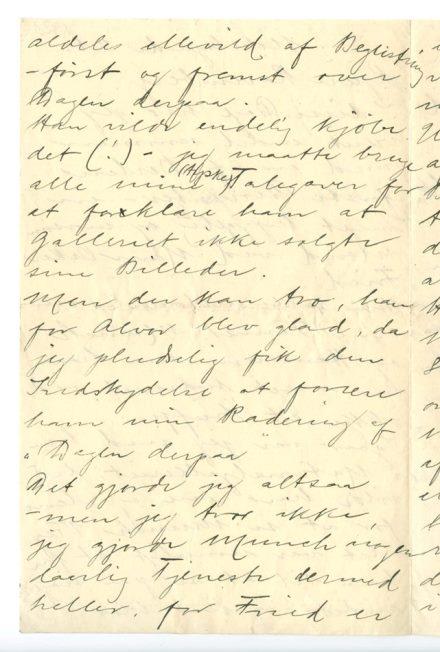 aldeles ellevild af Begeistring
- først og fremst over
Dagen derpaa.
Han vilde endelig kjøbe
det (!) - jeg maatte bruge
alle mine Talegaver for
at forklare ham at
Galleriet ikke solgte
sine Billeder.
Men du kan tro, han
for Alvor blev glad, da
jeg pludselig fik den
Indskydelse at forære
ham min Radering af
"Dagen derpaa"
Det gjorde jeg altsaa
- men jeg tror ikke
jeg gjorde Munch nogen
daarlig Tjeneste dermed
heller, for Fried er